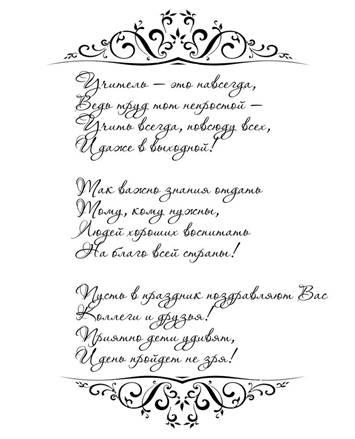 Учитель – это навсегда,
Ведь труд тот непростой –
Учить всегда, повсюду всех,
И даже в выходной!
Так важно знания отдать
Тому, кому нужны,
Людей хороших воспитать
На благо всей страны!
Пусть в праздник поздравляют Вас
Коллеги и друзья!
Приятно дети удивят,
И день пройдет не зря!